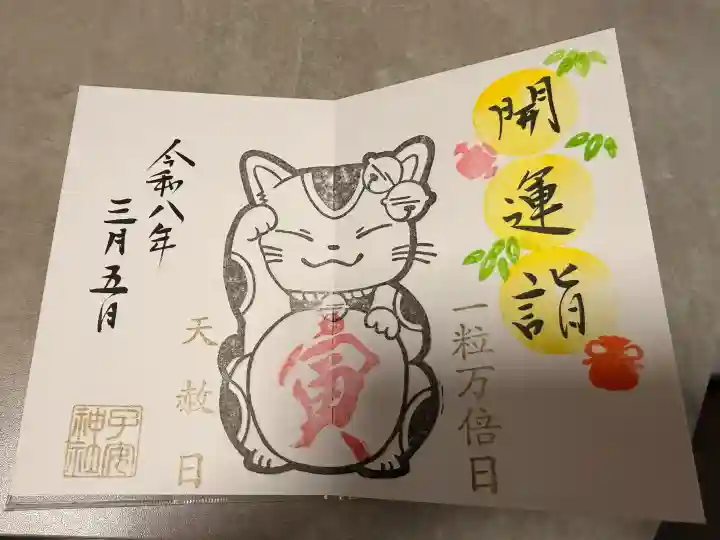 開運詣
一粒万倍日
寅
天赦日
令和八年
三月五日
子安
神社